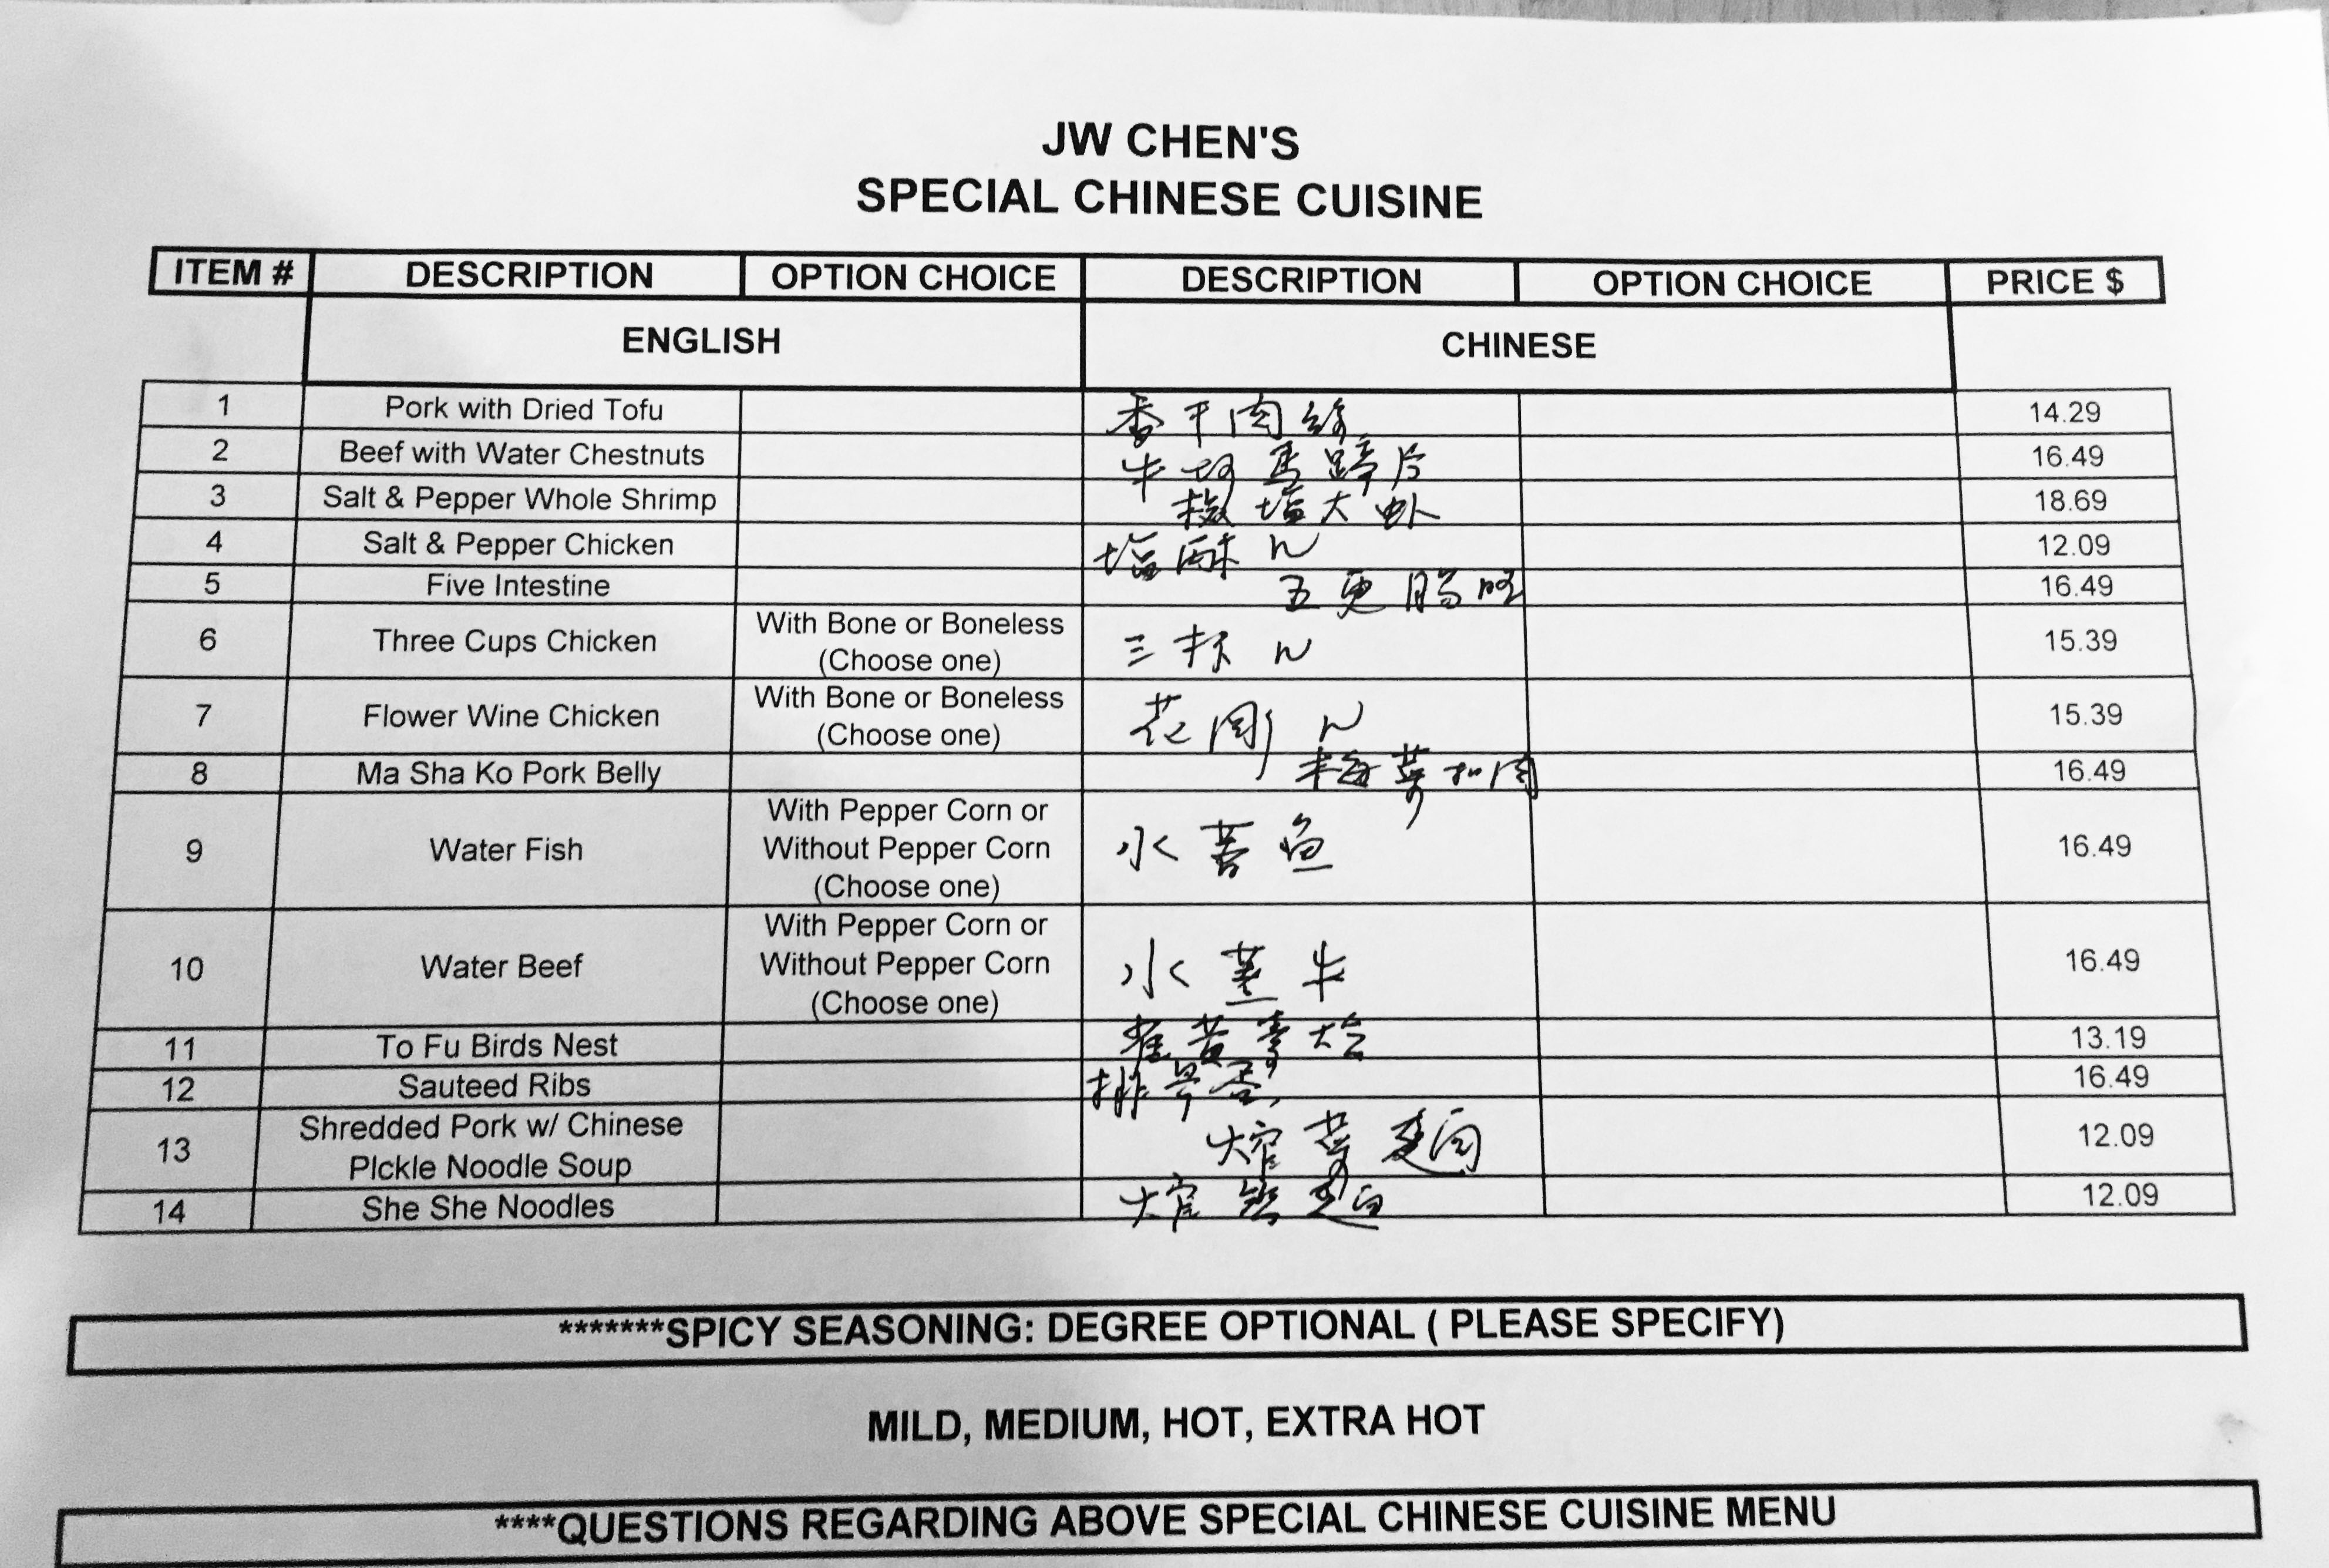 JW CHEN'S
SPECIAL CHINESE CUISINE
ITEM # DESCRIPTION OPTION CHOICE DESCRIPTION OPTION CHOICE PRICE $
ENGLISH CHINESE
1 Pork with Dried Tofu 香干肉絲 14.29
2 Beef with Water Chestnuts 牛 馬蹄片 16.49
3 Salt & Pepper Whole Shrimp 椒塩大虾 18.69
4 Salt & Pepper Chicken 塩酥 12.09
5 Five Intestine 五更腸旺 16.49
6 Three Cups Chicken With Bone or Boneless (Choose one) 三杯 15.39
7 Flower Wine Chicken With Bone or Boneless (Choose one) 花 15.39
8 Ma Sha Ko Pork Belly 梅菜扣肉 16.49
9 Water Fish With Pepper Corn or Without Pepper Corn (Choose one) 水 鱼 16.49
10 Water Beef With Pepper Corn or Without Pepper Corn (Choose one) 水 牛 16.49
11 To Fu Birds Nest 13.19
12 Sauteed Ribs 排骨 16.49
13 Shredded Pork w/ Chinese PIckle Noodle Soup 12.09
14 She She Noodles 12.09
*******SPICY SEASONING: DEGREE OPTIONAL ( PLEASE SPECIFY)
MILD, MEDIUM, HOT, EXTRA HOT
****QUESTIONS REGARDING ABOVE SPECIAL CHINESE CUISINE MENU